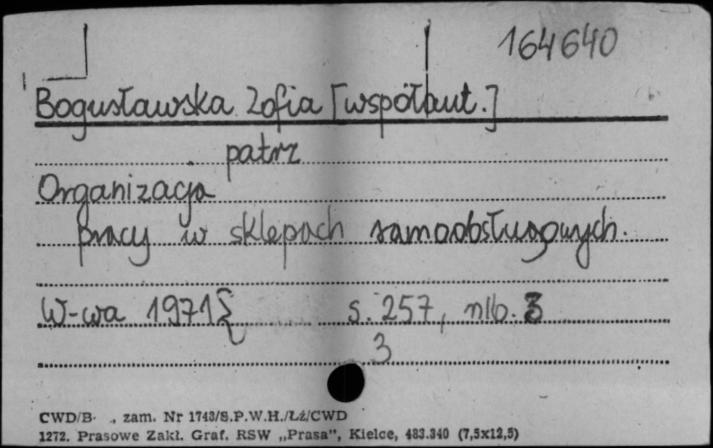 164640
Bogusławska Zofia [współaut.]
patrz
Organizacja
pracy w sklepach samoobsługowych.
W-wa 1971 s. 257, nlb. 3
3
CWD/B· ., zam. Nr 1743/S.P.W.H./Łź/CWD
1272. Prasowe Zakł. Graf. RSW „Prasa”, Kielce, 483.340 (7,5x12,5)